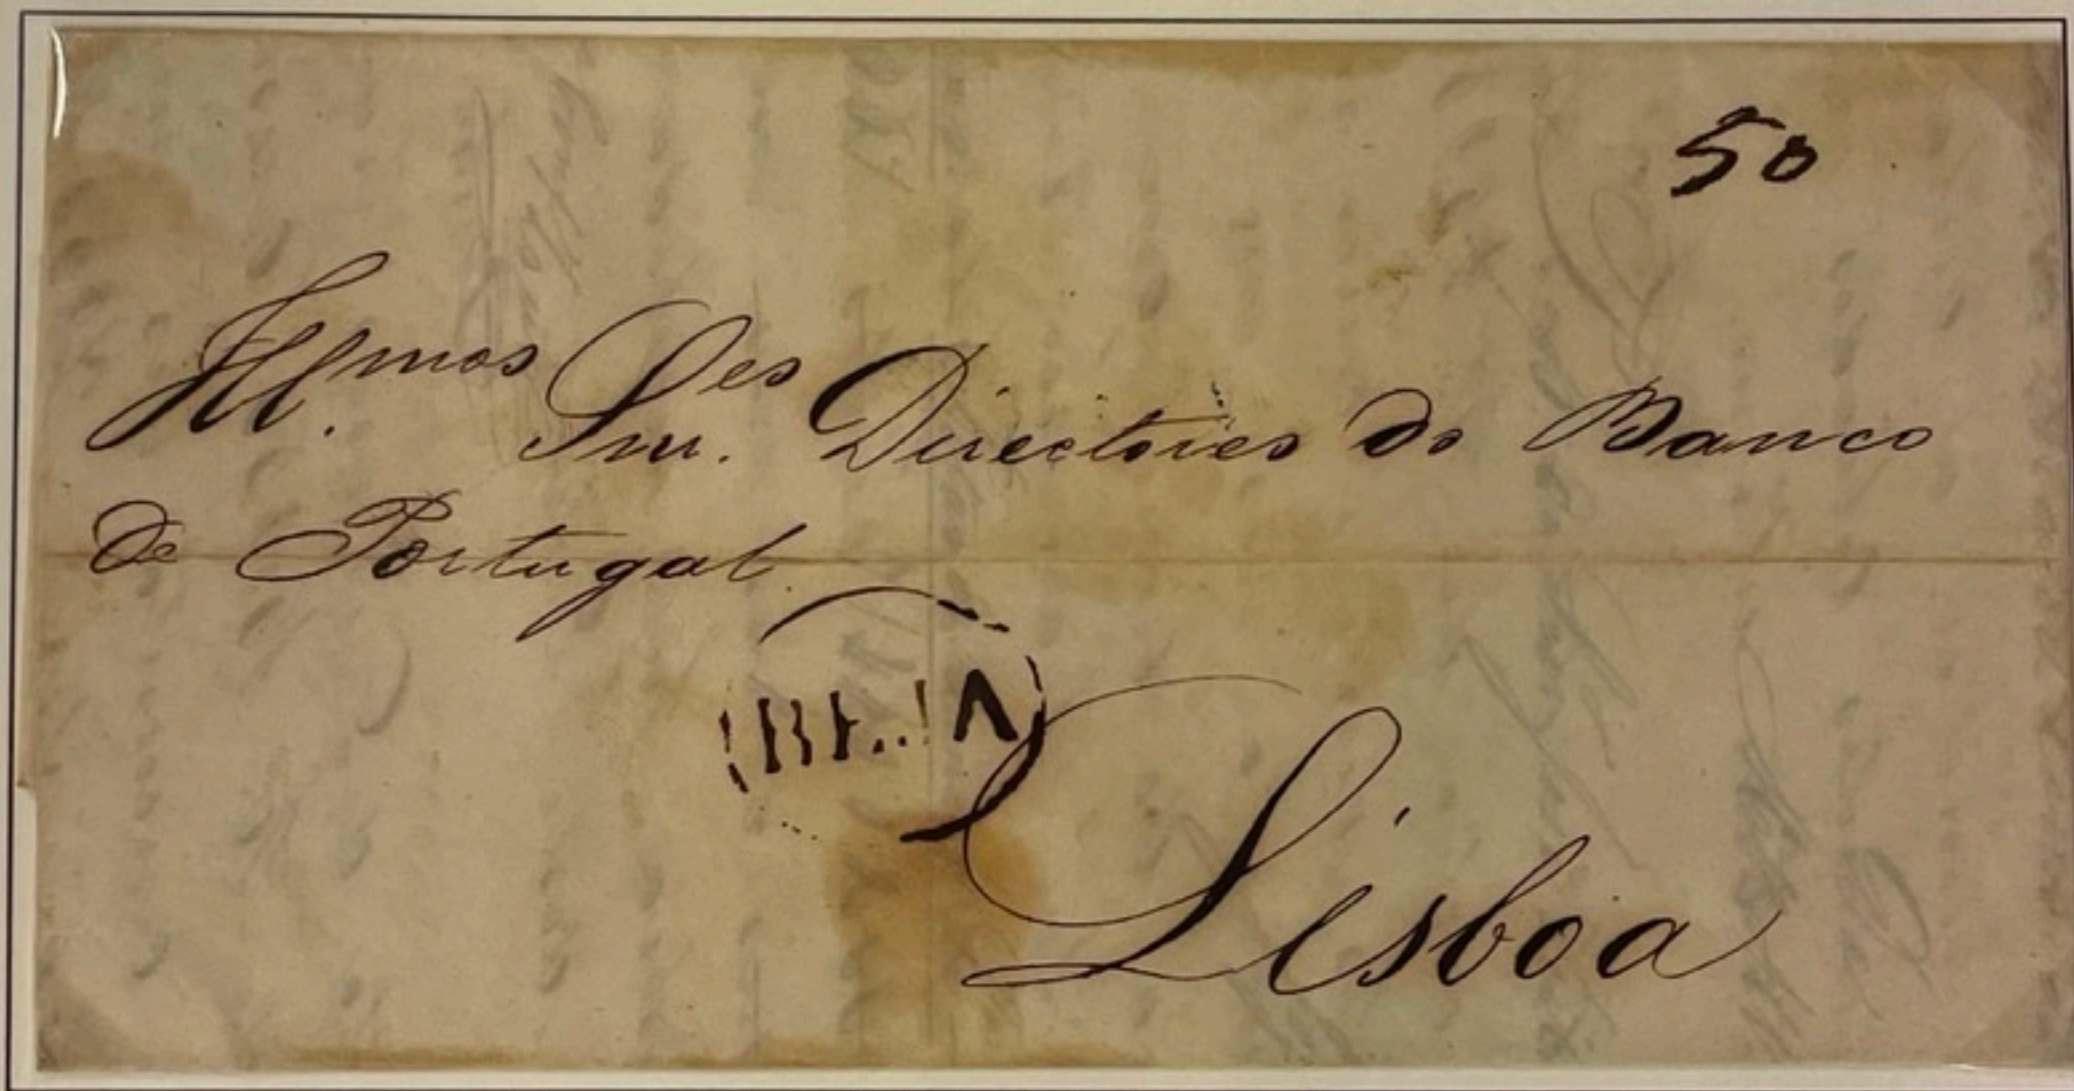 50
Ill.mos Snr.es Directores do Banco
de Portugal
BEJA
Lisboa